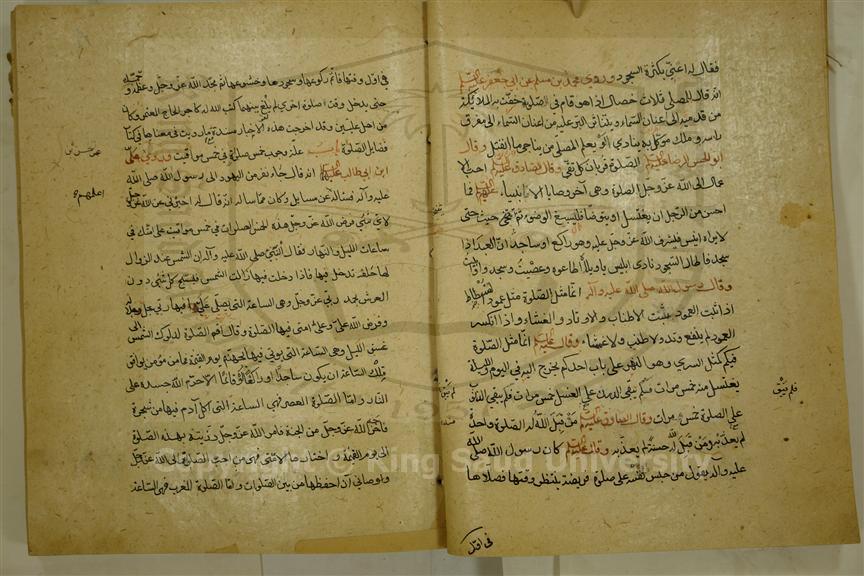 فقال له اعنّي بكثرة السجود وروى محمد بن مسلم عن ابي جعفر عليه السلام
انه قال للمصلي ثلاث خصال اذا هو قام في الصلوة حفت به الملائكة
من قدميه الى اعنان السماء ويتناثر البر عليه من اعنان السماء الى مفرق
راسه وملك موكل به ينادي الو يعلم المصلي من يناجي ما انفتل وقال
ابو الحسن الرضا عليه السلام الصلوة قربان كل تقي وقال الصادق عليه السلام احب الا
عمال الى الله عز وجل الصلوة وهي آخر وصايا الانبياء عليهم السلام فما
احسن من الرجل ان يغتسل او يتوضا فيسبغ الوضوء ثم يتنحى حيث
لا يراه انيس فيشرف الله عز وجل عليه وهو راكع او ساجد ان العبد اذا
سجد فاطال السجود نادى ابليس يا ويلاه اطاعوه وعصيت وسجدوا وابيت
وقال رسول الله صلى الله عليه وآله انما مثل الصلوة مثل عمود الفسطاط
اذا ثبت العمود ثبتت الاطناب والاوتاد والغشاء واذا انكسر
العمود لم ينفع وتد ولا طنب ولا غشاء وقال عليه السلام انما مثل الصلوة
فيكم كمثل السري وهو النهر على باب احدكم يخرج اليه في اليوم والليلة
يغتسل منه خمس مرات فلم يبق الدرن على الغسل خمس مرات فلم يبق الذنوب
على الصلوة خمس مرات وقال الصادق عليه السلام من قبل الله له صلوة واحدة
لم يعذبه ومن قبل له حسنة لم يعذبه وقال عليه السلام كان رسول الله صلى الله
عليه وآله يقول من حبس نفسه على صلوة فريضة ينتظر وقتها فصلاها
في اول
فلم يبق
في اول وقتها فاتم ركوعها وسجودها وخشوعها ثم مجد الله عز وجل وعظمه وحمده
حتى يدخل وقت صلوة اخرى لم يلغ بينهما كتب الله له كاجر الحاج المعتمر وكان
من اهل عليين وقد اخرجت هذه الاخبار مسندة مع ما رويت في معناها في كتاب
فضايل الصلوة باب علة وجوب خمس صلوات في خمس مواقيت وروي عن
ابن ابي طالب عليه السلام انه قال جاء نفر من اليهود الى رسول الله صلى الله
عليه وآله فسأله عن مسايل وكان مما ساله انه قال له اخبرني عن الله عز وجل
لاي شيء فرض الله عز وجل هذه الخمس الصلوات في خمس مواقيت على امتك في
ساعات الليل والنهار فقال النبي صلى الله عليه وآله ان الشمس عند الزوال
لها حلقة تدخل فيها فاذا دخلت فيها زالت الشمس فيسبح كل شيء دون
العرش بحمد ربي عز وجل وهي الساعة التي يصلي علي فيها ربي جل جلاله
وفرض الله علي وعلى امتي فيها الصلوة وقال اقم الصلوة لدلوك الشمس الى
غسق الليل وهي الساعة التي يؤتى فيها بجهنم يوم القيمة فما من مؤمن يوافق
تلك الساعة ان يكون ساجدا او راكعا او قائما الا حرم الله جسده على
النار واما الصلوة العصر فهي الساعة التي اكل آدم فيها من شجرة
فاخرجه الله عز وجل من الجنة فامر الله عز وجل ذريته بهذه الصلوة
الى يوم القيمة واختارها لامتي فهي من احب الصلوات الى الله عز وجل
واوصاني ان احفظها من بين الصلوات واما الصلوة المغرب فهي الساعة
اعلمهم
Copyright © King Saud University